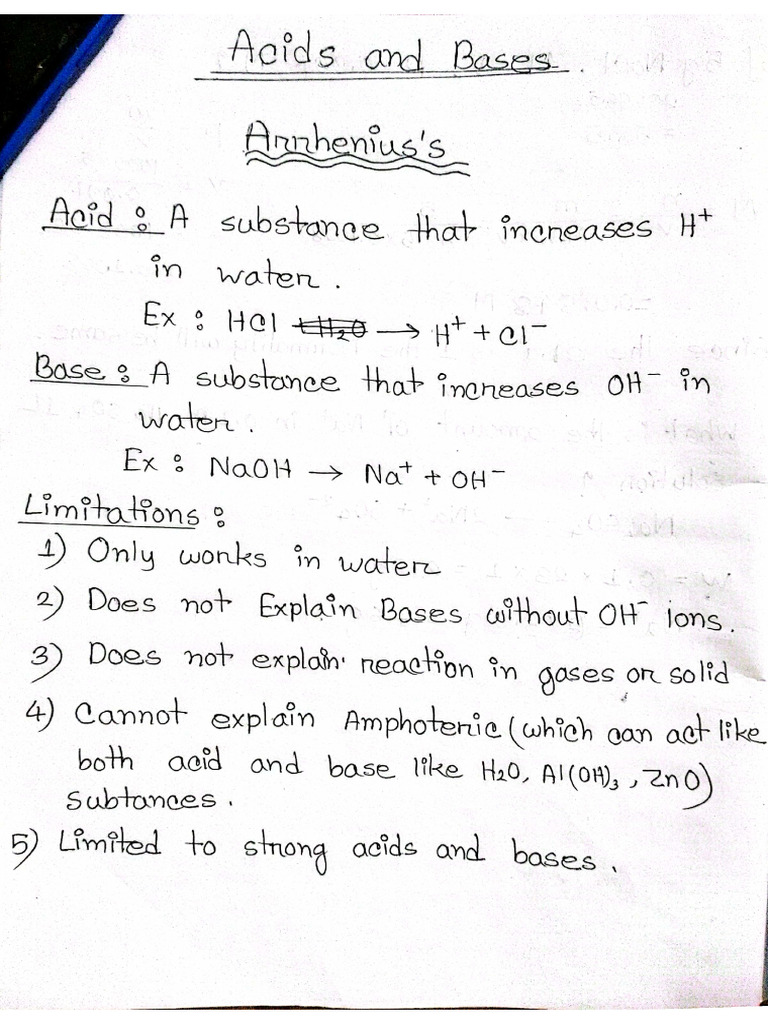 Acids and Bases.
Arrhenius's
Acid : A substance that increases H⁺
in water.
Ex : HCl ⟶ H⁺ + Cl⁻
Base : A substance that increases OH⁻ in
water.
Ex : NaOH → Na⁺ + OH⁻
Limitations :
1) Only works in water
2) Does not Explain Bases without OH⁻ ions.
3) Does not explain reaction in gases or solid
4) Cannot explain Amphoteric (which can act like
both acid and base like H2O, Al(OH)₃, ZnO)
Subtances.
5) Limited to strong acids and bases.